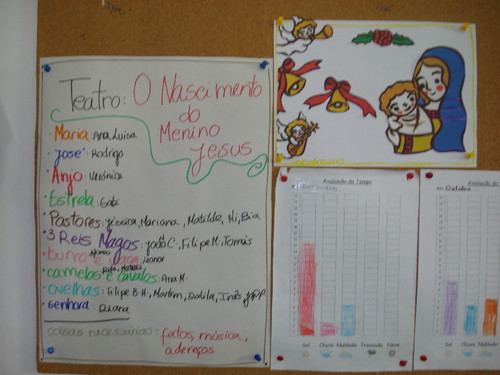 Teatro: O Nascimento
do
Menino
Jesus
· Maria: Ana Luisa
· José: Rodrigo
· Anjo: Verónica
· Estrela: Gabi
· Pastores: Jéssica, Mariana, Matilde, Mi, Bia
· 3 Reis Magos: João C., Filipe M. Tomás
· burro e vaca: Leonor
· camelos e cavalos: Ana M.
· ovelhas: Filipe B.H, Martim, Dalila, Inês
· senhora: Diana
coisas necessárias: fatos, música,
adereços
Avaliação do Tempo
Sol Chuva Nublado Trovoada Neve
Avaliação do
Outubro
Sol Chuva Nublado